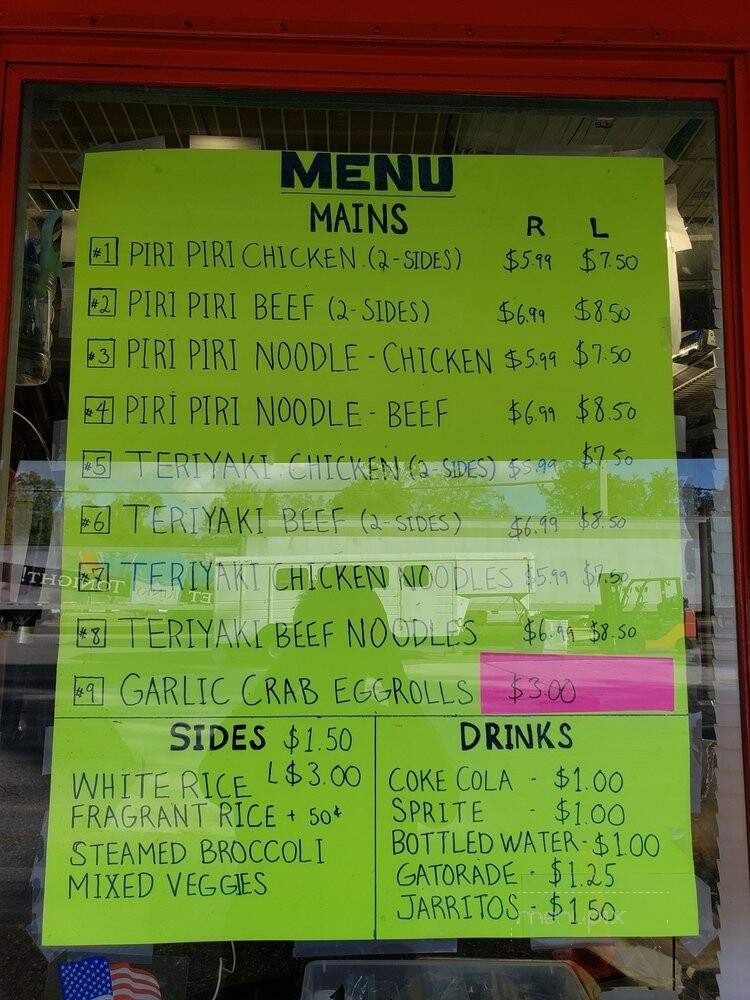 MENU
MAINS R L
#1 PIRI PIRI CHICKEN (2-SIDES) $5.99 $7.50
#2 PIRI PIRI BEEF (2-SIDES) $6.99 $8.50
#3 PIRI PIRI NOODLE - CHICKEN $5.99 $7.50
#4 PIRI PIRI NOODLE - BEEF $6.99 $8.50
#5 TERIYAKI CHICKEN (2-SIDES) $5.99 $7.50
#6 TERIYAKI BEEF (2-SIDES) $6.99 $8.50
#7 TERIYAKI CHICKEN NOODLES $5.99 $7.50
#8 TERIYAKI BEEF NOODLES $6.99 $8.50
#9 GARLIC CRAB EGGROLLS $3.00
SIDES $1.50
L $3.00
WHITE RICE
FRAGRANT RICE + 50¢
STEAMED BROCCOLI
MIXED VEGGIES
DRINKS
COKE COLA - $1.00
SPRITE - $1.00
BOTTLED WATER - $1.00
GATORADE - $1.25
JARRITOS - $1.50